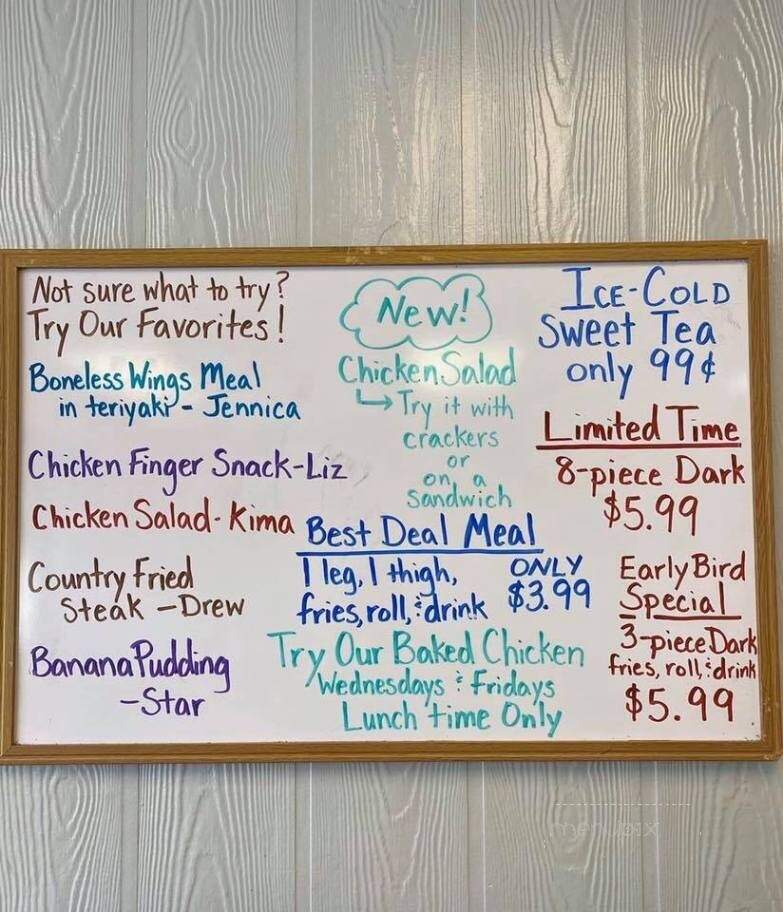 Not sure what to try?
Try Our Favorites!
Boneless Wings Meal
in teriyaki - Jennica
Chicken Finger Snack-Liz
Chicken Salad-Kima
Country Fried
Steak - Drew
Banana Pudding
-Star
New!
Chicken Salad
Try it with
crackers
or
on a
Sandwich
Best Deal Meal
1 leg, 1 thigh,
fries, roll, & drink
ONLY
$3.99
Try Our Baked Chicken
Wednesdays & Fridays
Lunch time Only
ICE-COLD
Sweet Tea
only 99¢
Limited Time
8-piece Dark
$5.99
Early Bird
Special
3-piece Dark
fries, roll, & drink
$5.99
menupix